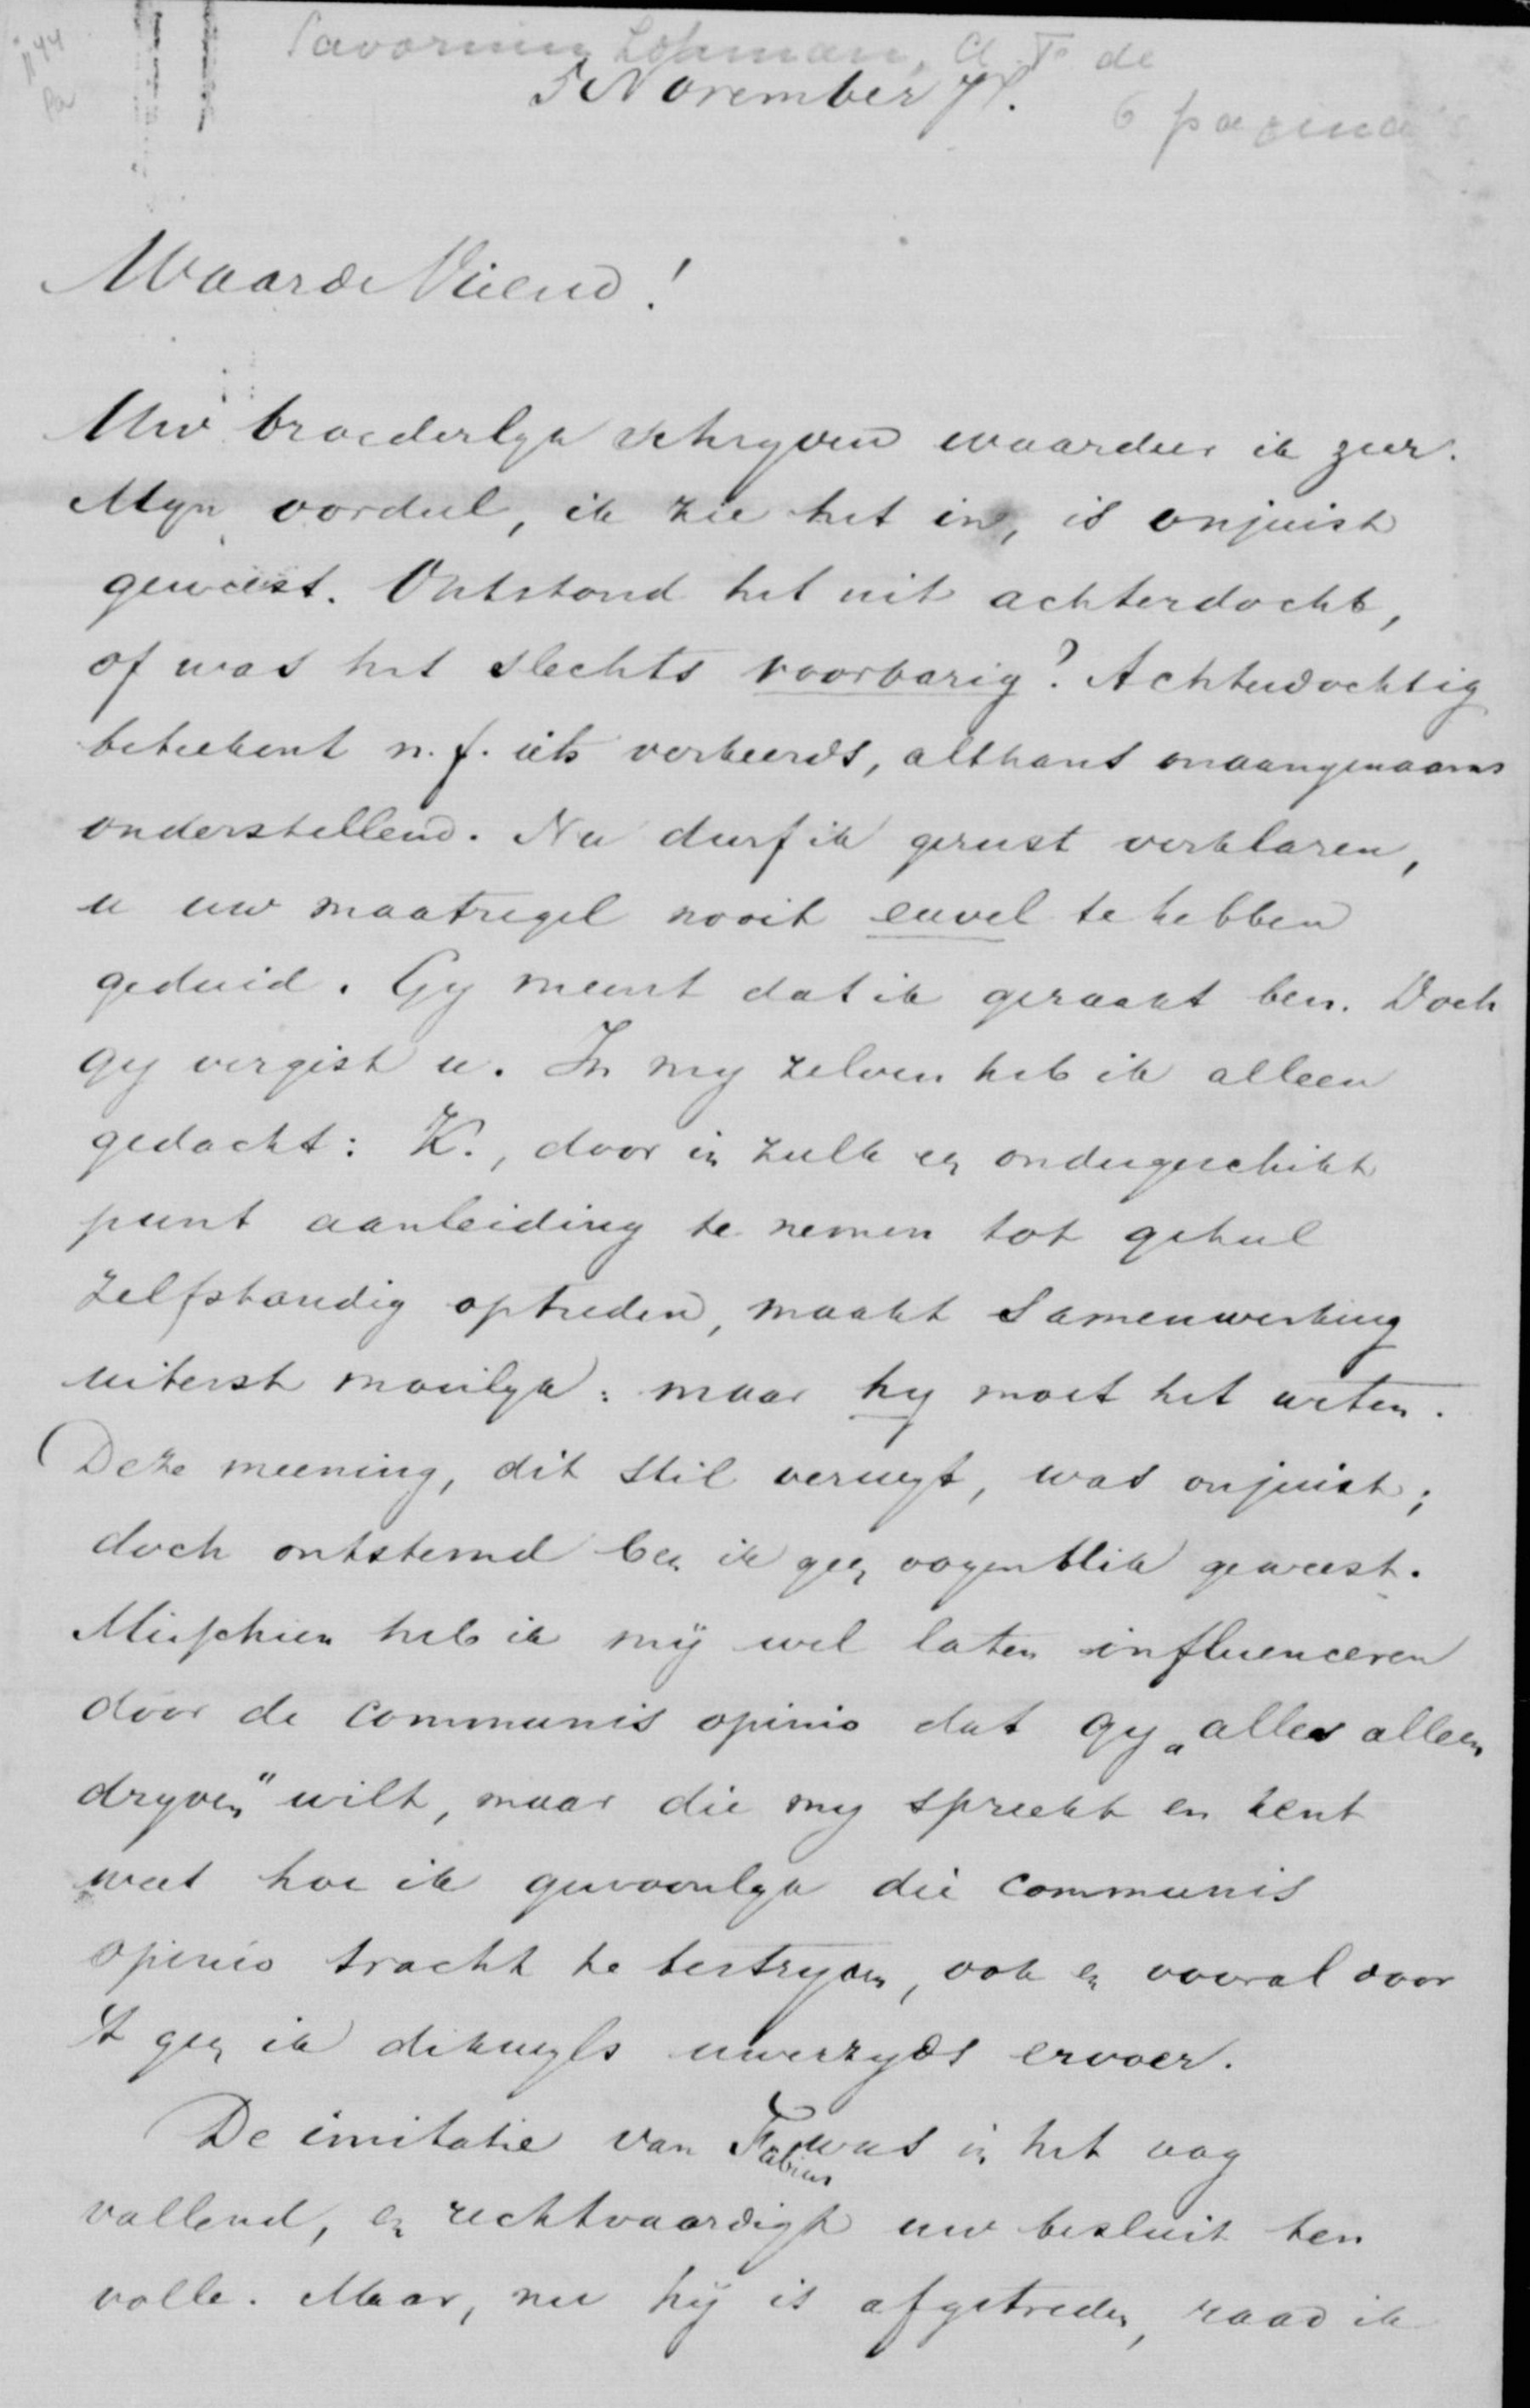 Savornin Lohman, A. F. de
5 November 78.
6 pagina's
Waarde Vriend!
Uw broederlyk schryven waardeer ik zeer.
Myn oordeel, ik zie het in, is onjuist
geweest. Ontstond het uit achterdocht,
of was het slechts voorbarig? Achterdochtig
beteekent n.f. iets verkeerds, althans onaangenaams
onderstellend. Nu durf ik gerust verklaren,
u uw maatregel nooit euvel te hebben
geduid. Gy meent dat ik geraakt ben. Doch
gy vergist u. In my zelven heb ik alleen
gedacht: K., door in zulk een ondergeschikt
punt aanleiding te nemen tot geheel
zelfstandig optreden, maakt samenwerking
uiterst moeilyk: maar hy moet het weten.
Deze meening, dit stil verwyt, was onjuist;
doch ontstemd ben ik geen oogenblik geweest.
Misschien heb ik mij wel laten influenceren
door de communis opinio dat gy „alles alleen
dryven" wilt, maar die my spreekt en kent
weet hoe ik gewoonlyk die communis
opinio tracht te bestryden, ook en vooral door
't geen ik dikwyls uwerzyds ervoer.
De imitatie van Fabius was in het oog
vallend, en rechtvaardigt uw besluit ten
volle. Maar, nu hij is afgetreden, raad ik